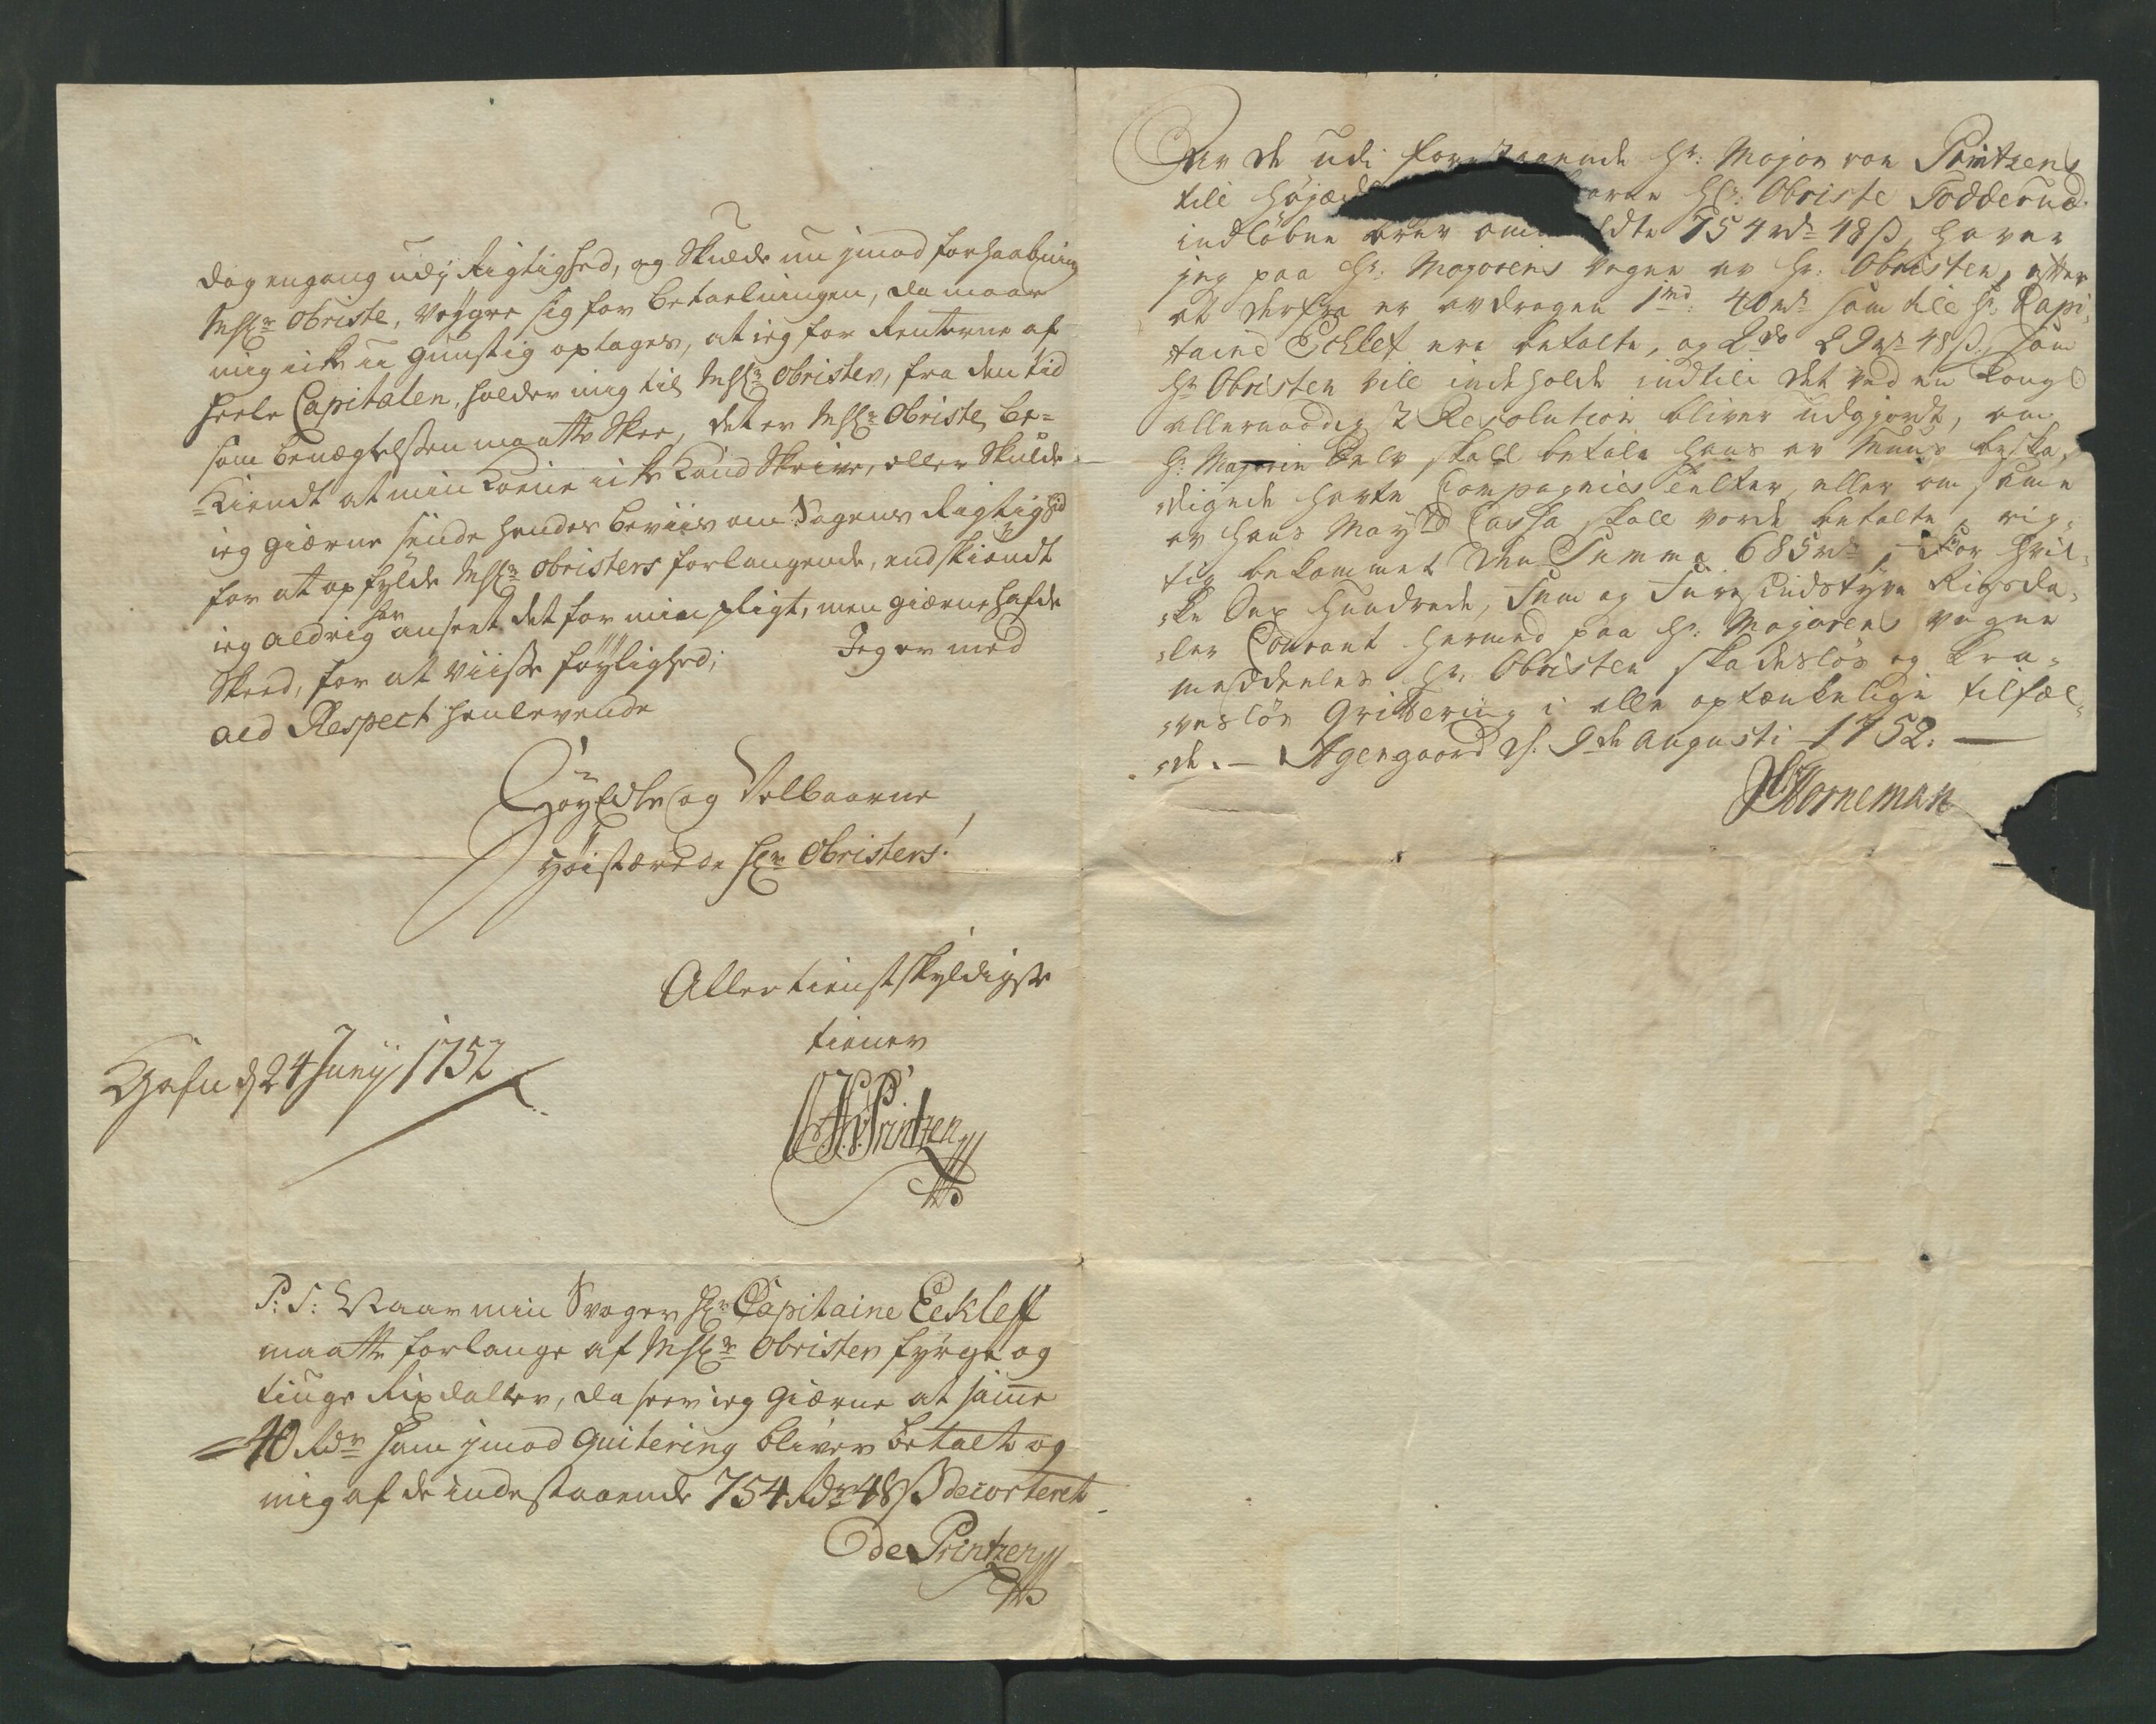 dog engang udj Rigtighed, og Skulde nu jmod forhaabning
MhHr Obriste, Veygre sig for betaelningen, da maae
mig icke u gunstig optages, at ieg for Renterne af
heele Capitalen, holder mig til MhHr Obrister, fra den tid
som benægtelssen maatte Skee, det er MhHr Obriste be=
=kiendt at min Koene icke Kand Skrive, eller Skulde
ieg giærne sende hendes beviis om Sagens Rigtighed
for at opfylde MhHr Obristers forlangende, endskiøndt
ieg aldrig har anseet det for min pligt, men giærne hafde
Skeed, for at viisse føyelighed; Jeg er med
ald Respect henlevende
HøyEdle og Velbaarne
Høistærede Hr Obristers!
Allertienstskyldigste
tiener
Hafn d 24 Junij 1752
v. Printzen
P: S: Naar min Svoger Hr Capitaine Eekleff
maatte forlange af MhHr Obrister fyrge og
tiuge Rixdaller, da seer ieg giærne at samme
=40 Rdr ham jmod Quitering bliver betalt og
mig af de indestaaende 754 Rdr 48 ß decorteret
de Printzen
Av de udi forestaaende Hr: Major von Printzens
till Høiæd baarne Hr: Obriste Todderud
indløbne brev om ldte 754 rd 48 ß, haver
jeg paa Hr: Majorens vegne av Hr: Obristen, efter
at derfra er avdragen 1md: 40 rd som till Hr Capi,
,taine Ecklef ere betalte, og 2do 29 rd 48 ß, som
Hr Obristen vill indeholde indtill det ved en Kongl
allernaadigst Resolution bliver udgjordt, om
Hr: Majoren Selv skall betale hans av Muus beska,
,digede havte Compagnies telter, eller om same
av hans Mayts Cassa skall vorde betalte, rig,
tig bekommet den Summa 685 rd, For hvil,
,ke Sex Hundrede, Fem og Fiiresindstyve Rigsda,
,ler Courant hermed paa Hr: Majorens vegne
meddeeles Hr: Obristen skadesløs og kra,
,vesløs Qvittering i alle optænkelige tilfæl,
,de. – Agergaard d. 9de Augusti 1752. –
Horneman